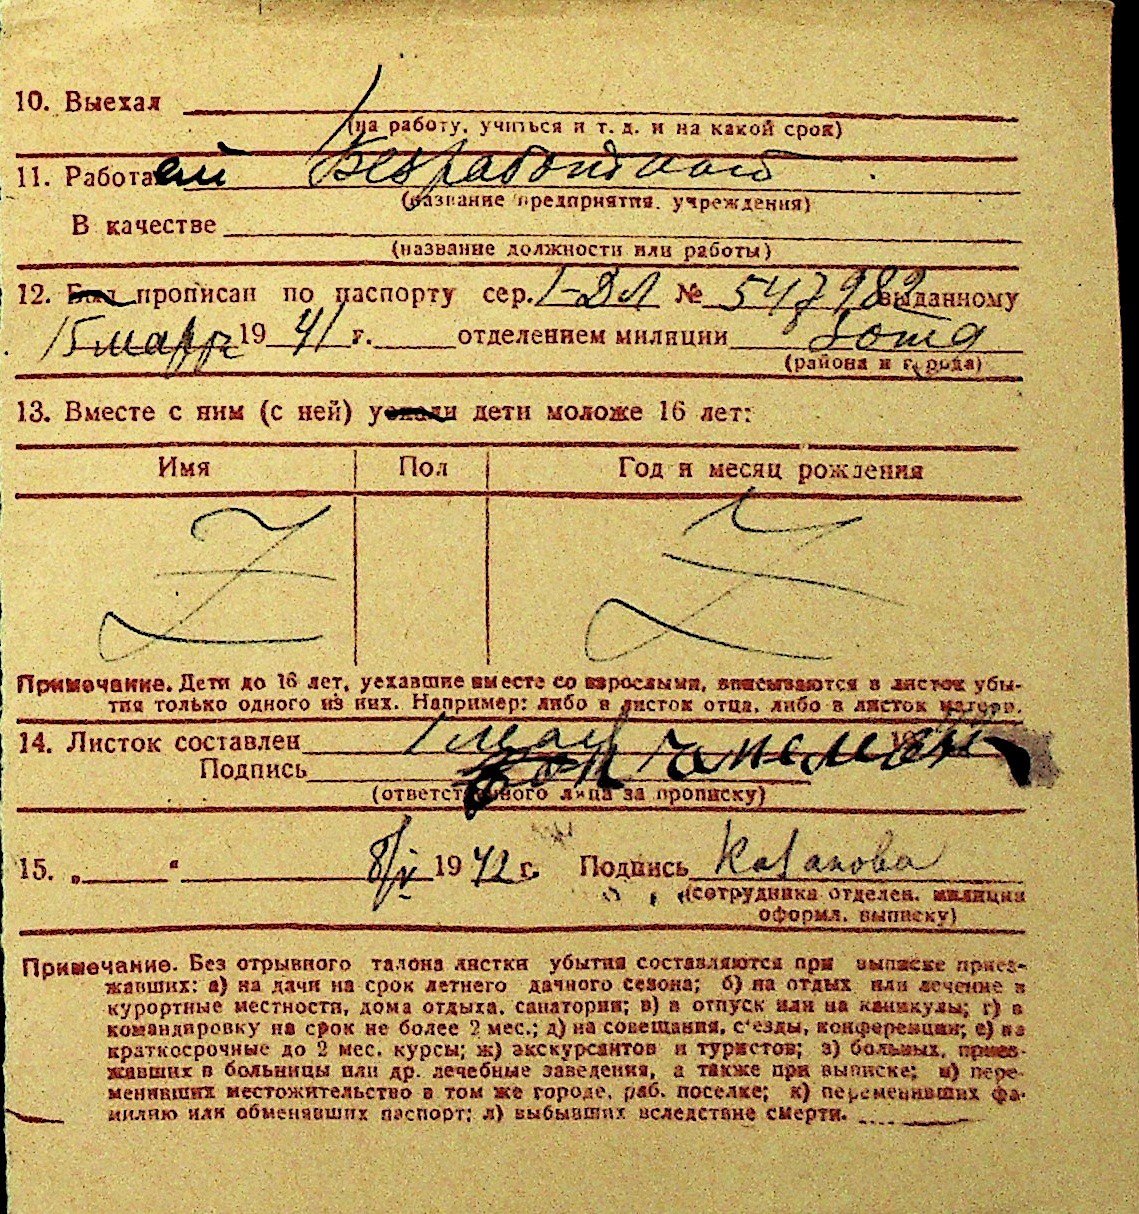 10. Выехал
(на работу, учиться и т. д. и на какой срок)
11. Работа Безработный
(название предприятия, учреждения)
В качестве
(название должности или работы)
12. Был прописан по паспорту сер. № 547989 выданному
15 марта 19 41 г. отделением милиции
(района и города)
13. Вместе с ним (с ней) уехали дети моложе 16 лет:
Имя Пол Год и месяц рождения
Z Z
Примечание. Дети до 16 лет, уехавшие вместе со взрослыми, вписываются в листок убы-
тия только одного из них. Например: либо в листок отца, либо в листок матери.
14. Листок составлен 1 мая 19
Подпись
(ответственного лица за прописку)
15. „ “ 8/V 1942 г. Подпись Казакова
(сотрудника отделен. милиции
оформл. выписку)
Примечание. Без отрывного талона листки убытия составляются при выписке приез-
жавших: а) на дачи на срок летнего дачного сезона; б) на отдых или лечение в
курортные местности, дома отдыха, санатории; в) в отпуск или на каникулы; г) в
командировку на срок не более 2 мес.; д) на совещания, с'езды, конференции; е) на
краткосрочные до 2 мес. курсы; ж) экскурсантов и туристов; з) больных, приез-
жавших в больницы или др. лечебные заведения, а также при выписке; и) пере-
менивших местожительство в том же городе, раб. поселке; к) переменивших фа-
милию или обменявших паспорт; л) выбывших вследствие смерти.